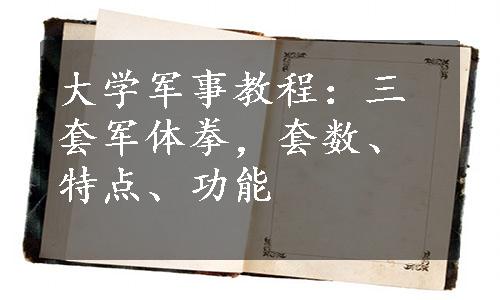 大学军事教程：三
套军体拳，套数、
特点、功能